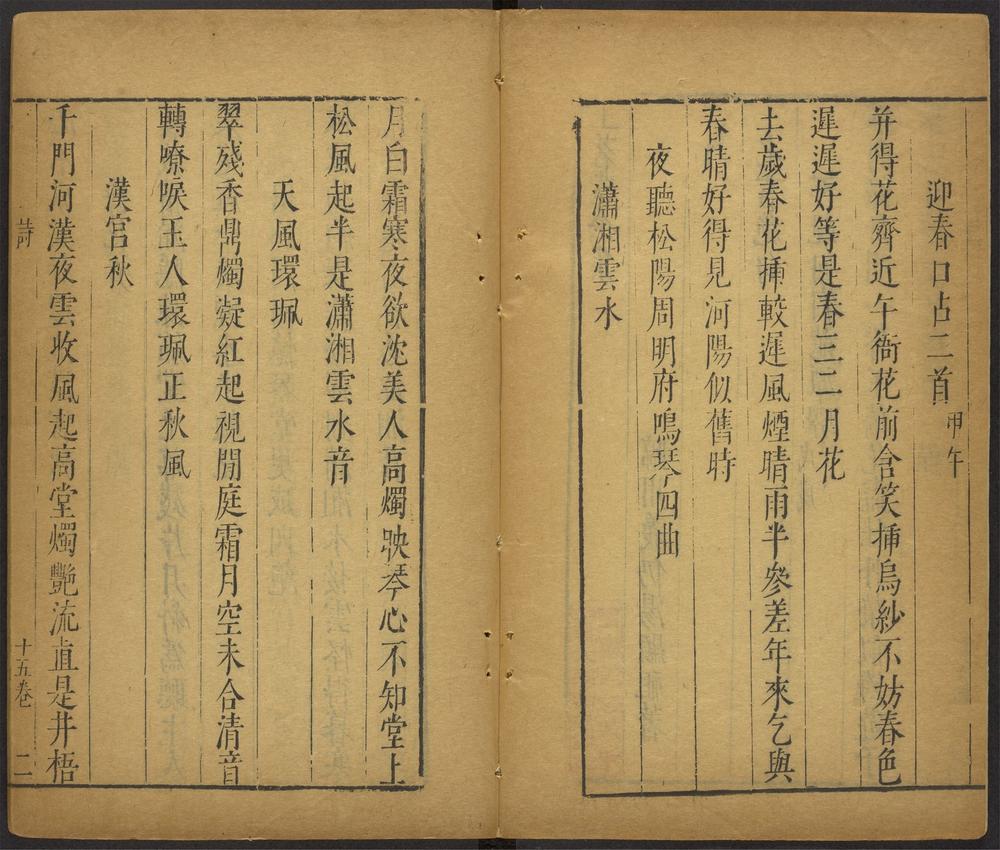 迎春口占二首甲午
幷得花齊近午衙花前含笑揷烏紗不妨春色
遲遲好等是春三二月花
去歲春花揷較遲風煙晴雨半參差年來乞與
春晴好得見河陽似舊時
夜聽松陽周明府鳴琴四曲
瀟湘雲水
月白霜寒夜欲沈美人高燭映琴心不知堂上
松風起半是瀟湘雲水音
天風環珮
翠殘香鼎燭凝紅起視閒庭霜月空未合清音
轉嘹唳玉人環珮正秋風
漢宮秋
千門河漢夜雲收風起高堂燭艷流直是井梧
詩 十五卷 二